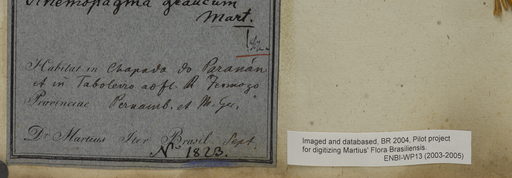 Anemopaegma glaucum
Mart.
Habitat in Chapada do Paranán
et in Taboleiro ad fl. R. Formozo
Provinciae Pernamb. et M. Ge.
Dr. Martius Iter Brasil. Sept.
N. 1823.
Imaged and databased, BR 2004, Pilot project
for digitizing Martius' Flora Brasiliensis.
ENBI-WP13 (2003-2005)